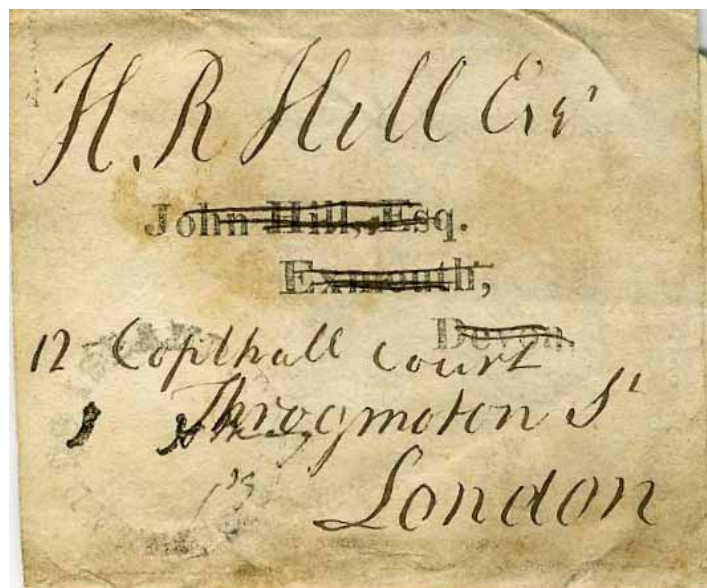 H. R Hill Esqr
John Hill, Esq.
Exmouth,
Devon.
12 Copthall Court
Throgmoton St
London